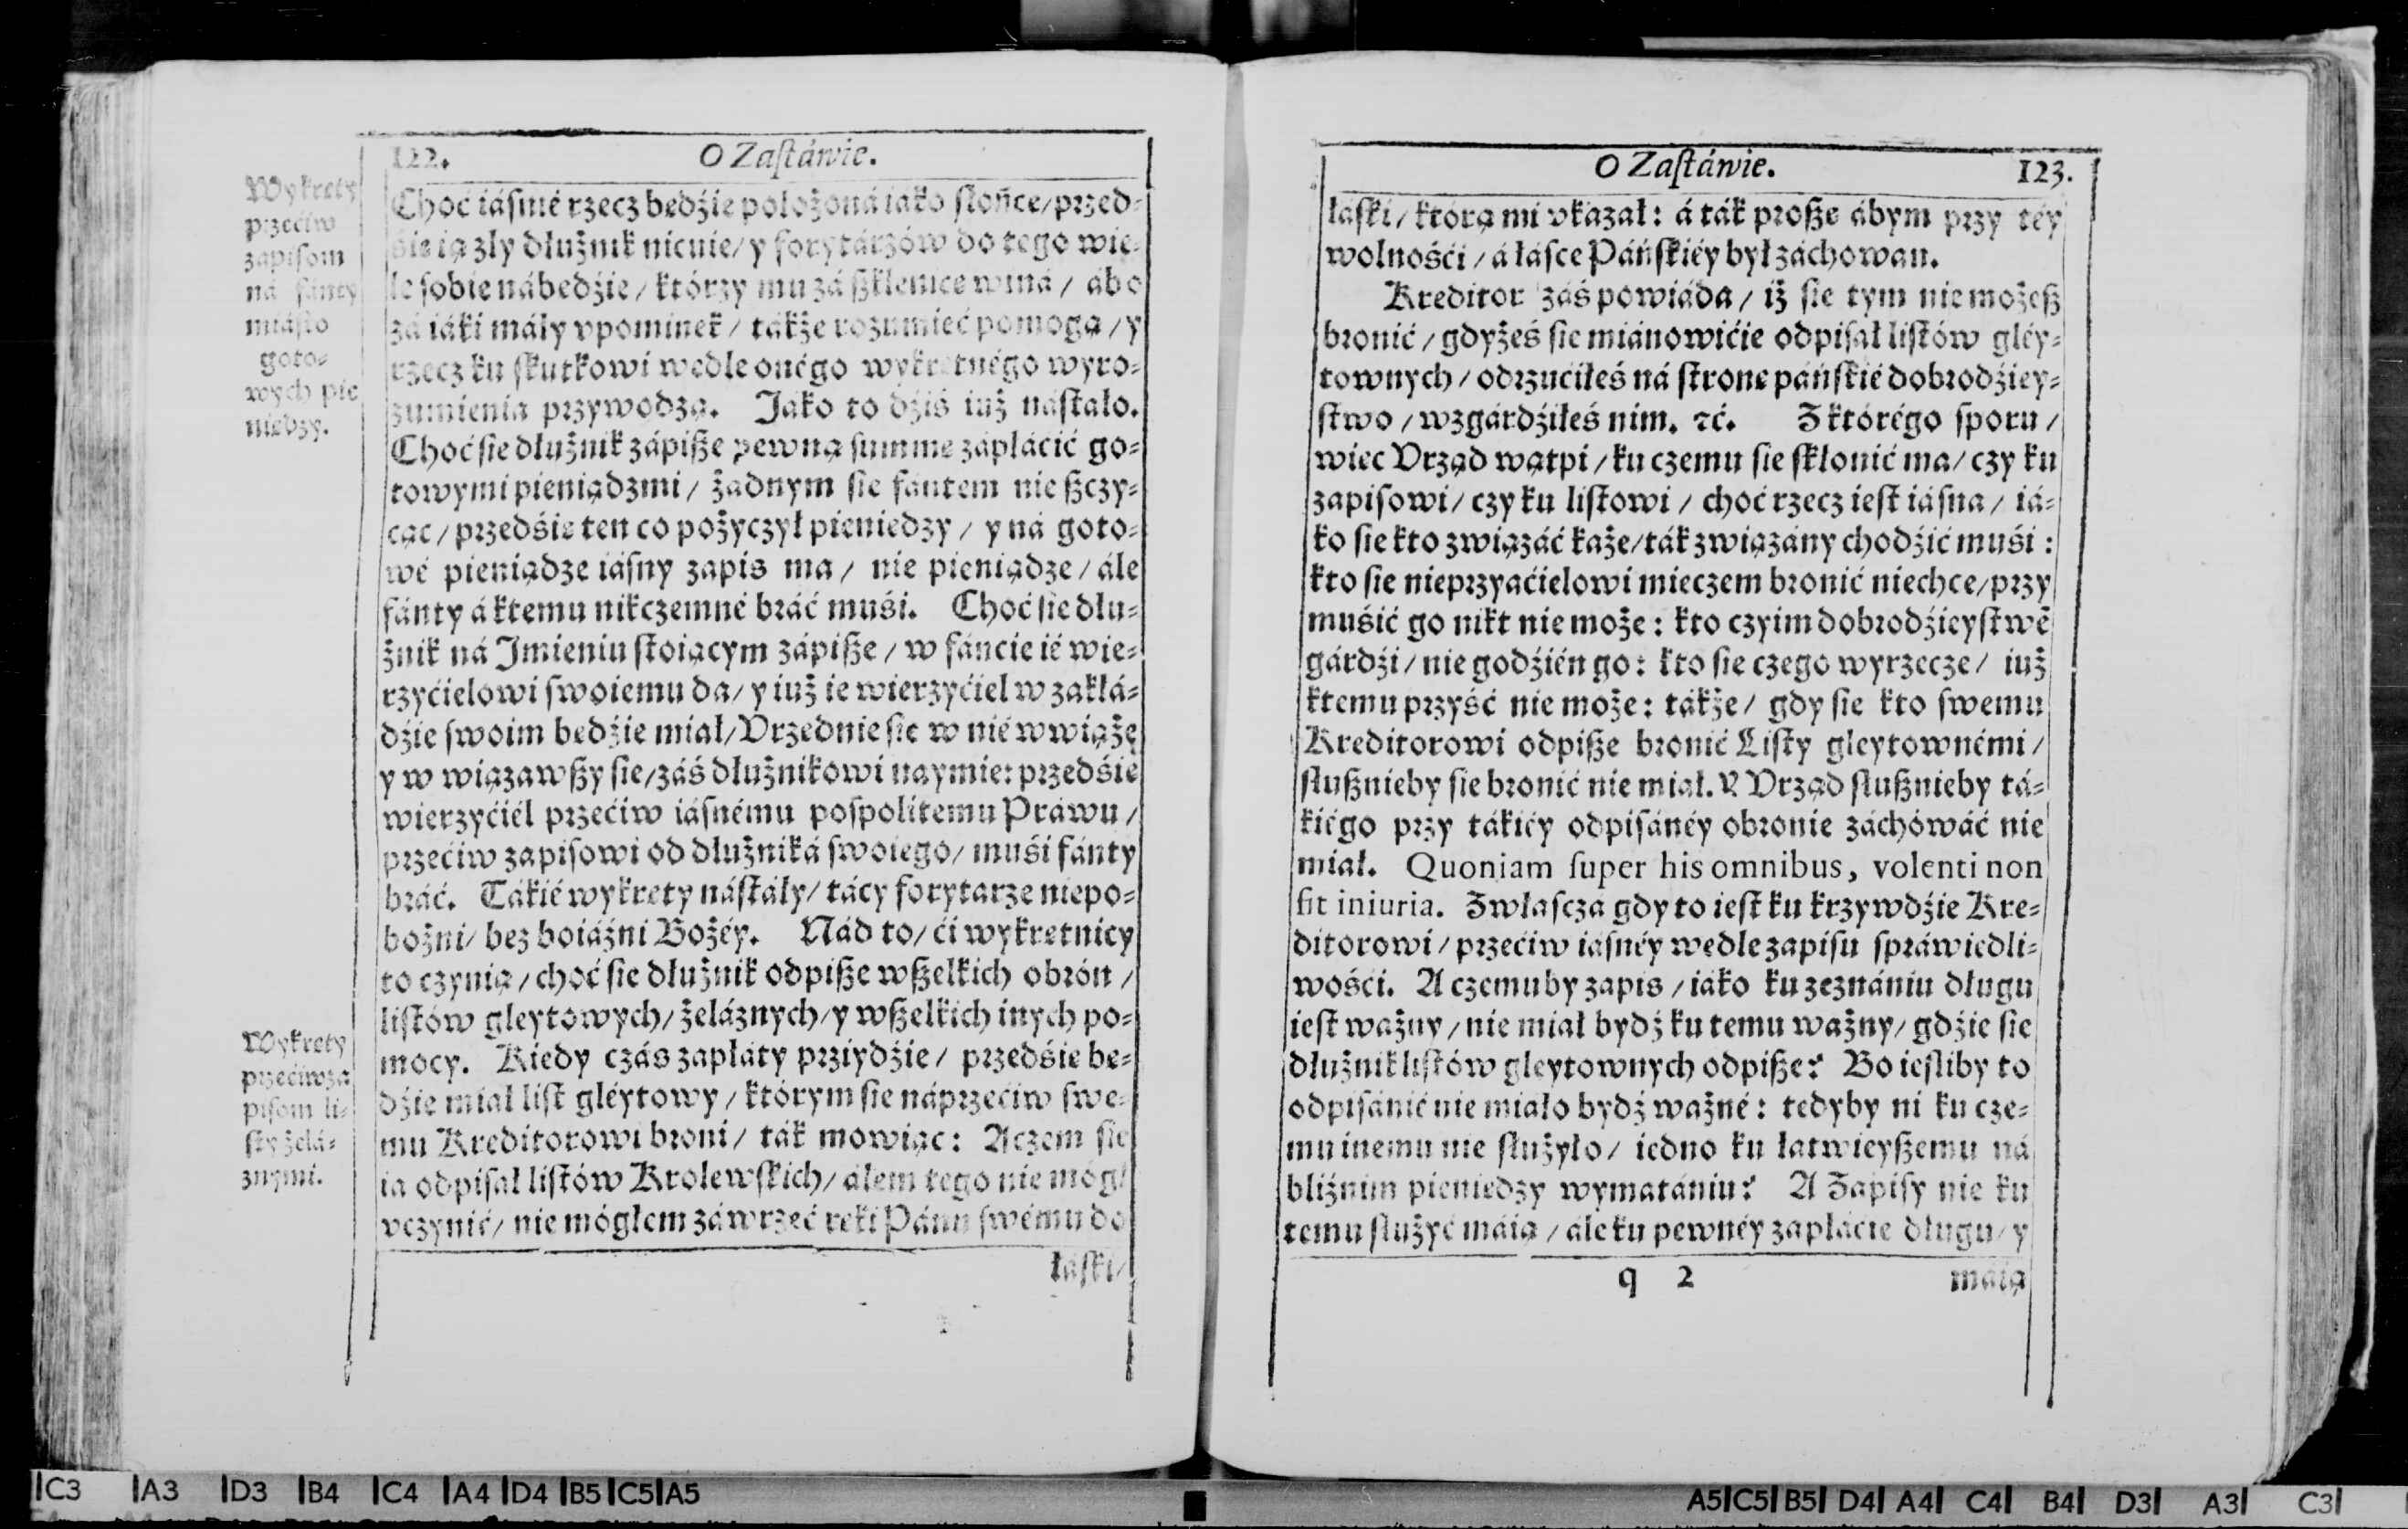 122. O Zaſtáwie.
Wykręty
przećiw
zapiſom
ná fánty
miáſto
goto-
wych pie
niędzy.
Choć iáſné rzecz będźie położoná iáko słońce/ przed-
śię ią zły dłużnik nicuie/ y forytárzów do tego wie-
le ſobie nábędźie/ którzy mu zá ſzklenice winá/ ábo
zá iáki máły vpominek/ tákże rozumieć pomogą/ y
rzecz ku ſkutkowi wedle onégo wykrętnégo wyro-
zumienia przywodzą. Jáko to dźiś iuż náſtało.
Choć ſię dłużnik zápiſze pewną ſummę zápłáćić go-
towymi pieniądzmi/ żadnym ſię fántem nie ſzczy-
cąc/ przedśię ten co pożyczył pieniędzy/ y ná goto-
wé pieniądze iáſny zapis ma/ nie pieniądze/ ále
fánty á ktemu nikczemné bráć muśi. Choć ſię dłu-
żnik ná Imieniu ſtoiącym zápiſze/ w fánćie ié wie-
rzyćielowi ſwoiemu da/ y iuż ie wierzyćiel w zakłá-
dźie ſwoim będźie miał/ Vrzędnie ſię w nié wwiążę
y w wiązawſzy ſię/ záś dłużnikowi naymie: przedśię
wierzyćiél przećiw iáſnému poſpolitemu Práwu/
przećiw zapiſowi od dłużniká ſwoiego/ muśi fánty
bráć. Tákié wykręty náſtáły/ tácy forytarze niepo-
bożni/ bez boiáźni Bożéy. Nád to/ ći wykrętnicy
to czynią/ choć ſię dłużnik odpiſze wſzelkich obrón/
liſtów gleytowych/ żeláznych/ y wſzelkich inych po-
mocy. Kiedy czás zapłáty prziydźie/ przedśię bę-
dźie miał liſt gléytowy/ którym ſię náprzećiw ſwe-
mu Kreditorowi broni/ ták mowiąc: Aczem ſię
ia odpiſał liſtów Krolewſkich/ álem tego nie mógł
vczynić/ nie mógłem záwrzeć ręki Pánu ſwému do
Wykręty
przećiw za
piſom li-
ſty żelá-
znymi.
łáſki/
O Zaſtáwie. 123.
łáſki/ którą mi vkazał: á ták proſzę ábym przy téy
wolnośći/ á łáſce Páńſkiéy był záchowan.
Kreditor záś powiáda/ iż ſię tym nie możeſz
bronić/ gdyżeś ſię miánowićie odpiſał liſtów gléy-
townych/ odrzućiłeś ná ſtronę páńſkié dobrodźiey-
ſtwo/ wzgárdźiłeś nim. ꝛć. Z którégo ſporu/
więc Vrząd wątpi/ ku czemu ſię ſkłonić ma/ czy ku
zapiſowi/ czy ku liſtowi/ choć rzecz ieſt iáſna/ iá-
ko ſię kto związáć każe/ ták związány chodźić muśi:
kto ſię nieprzyaćielowi mieczem bronić niechce/ przy
muśić go nikt nie może: kto czyim dobrodźieyſtwē
gárdźi/ nie godźién go: kto ſię czego wyrzecze/ iuż
ktemu przyść nie może: tákże/ gdy ſię kto ſwemu
Kreditorowi odpiſze bronić Liſty gleytownémi/
słuſznieby ſię bronić nie miał. Y Vrząd słuſznieby tá-
kiégo przy tákiéy odpiſánéy obronie záchówáć nie
miał. Quoniam ſuper his omnibus, volenti non
fit iniuria. Zwłaſczá gdy to ieſt ku krzywdźie Kre-
ditorowi/ przećiw iáſnéy wedle zapiſu ſpráwiedli-
wośći. A czemuby zapis/ iáko ku zeznániu długu
ieſt ważny/ nie miał bydź ku temu ważny/ gdźie ſię
dłużnik liſtów gleytownych odpiſze? Bo ieſliby to
odpiſánié nie miáło bydź ważné: tedyby ni ku cze-
mu inemu nie służyło/ iedno ku łatwieyſzemu ná
bliźnim pieniędzy wymatániu? A Zapiſy nie ku
temu służyć máią/ ále ku pewnéy zapłáćie długu/ y
q 2 máią
C3 A3 D3 B4 C4 A4 D4 B5 C5 A5
A5 C5 B5 D4 A4 C4 B4 D3 A3 C3